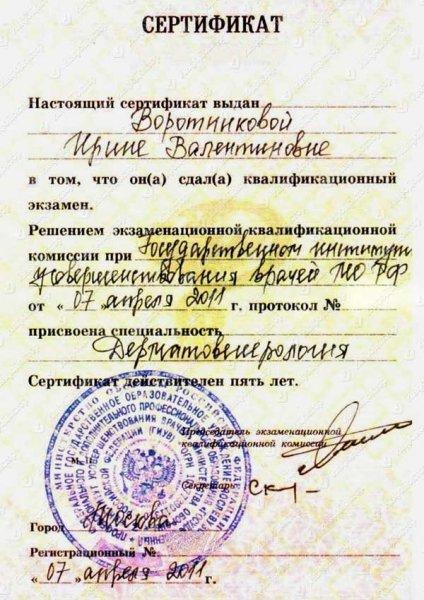 СЕРТИФИКАТ
Настоящий сертификат выдан
Воротниковой
Ирине Валентиновне
в том, что он(а) сдал(а) квалификационный
экзамен.
Решением экзаменационной квалификационной
комиссии при Государственном институте
усовершенствования врачей МО РФ
от «07» апреля 2011 г. протокол №
присвоена специальность
Дерматовенерология
Сертификат действителен пять лет.
Председатель экзаменационной
квалификационной комиссии
Секретарь:
Город Москва
Регистрационный №
«07» апреля 2011 г.